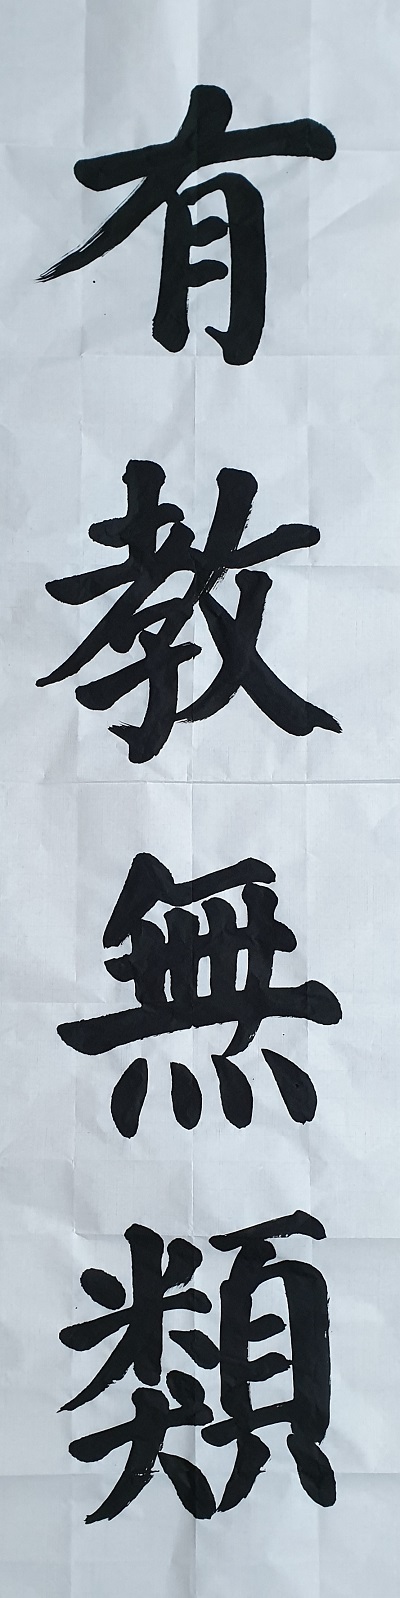 有教無類